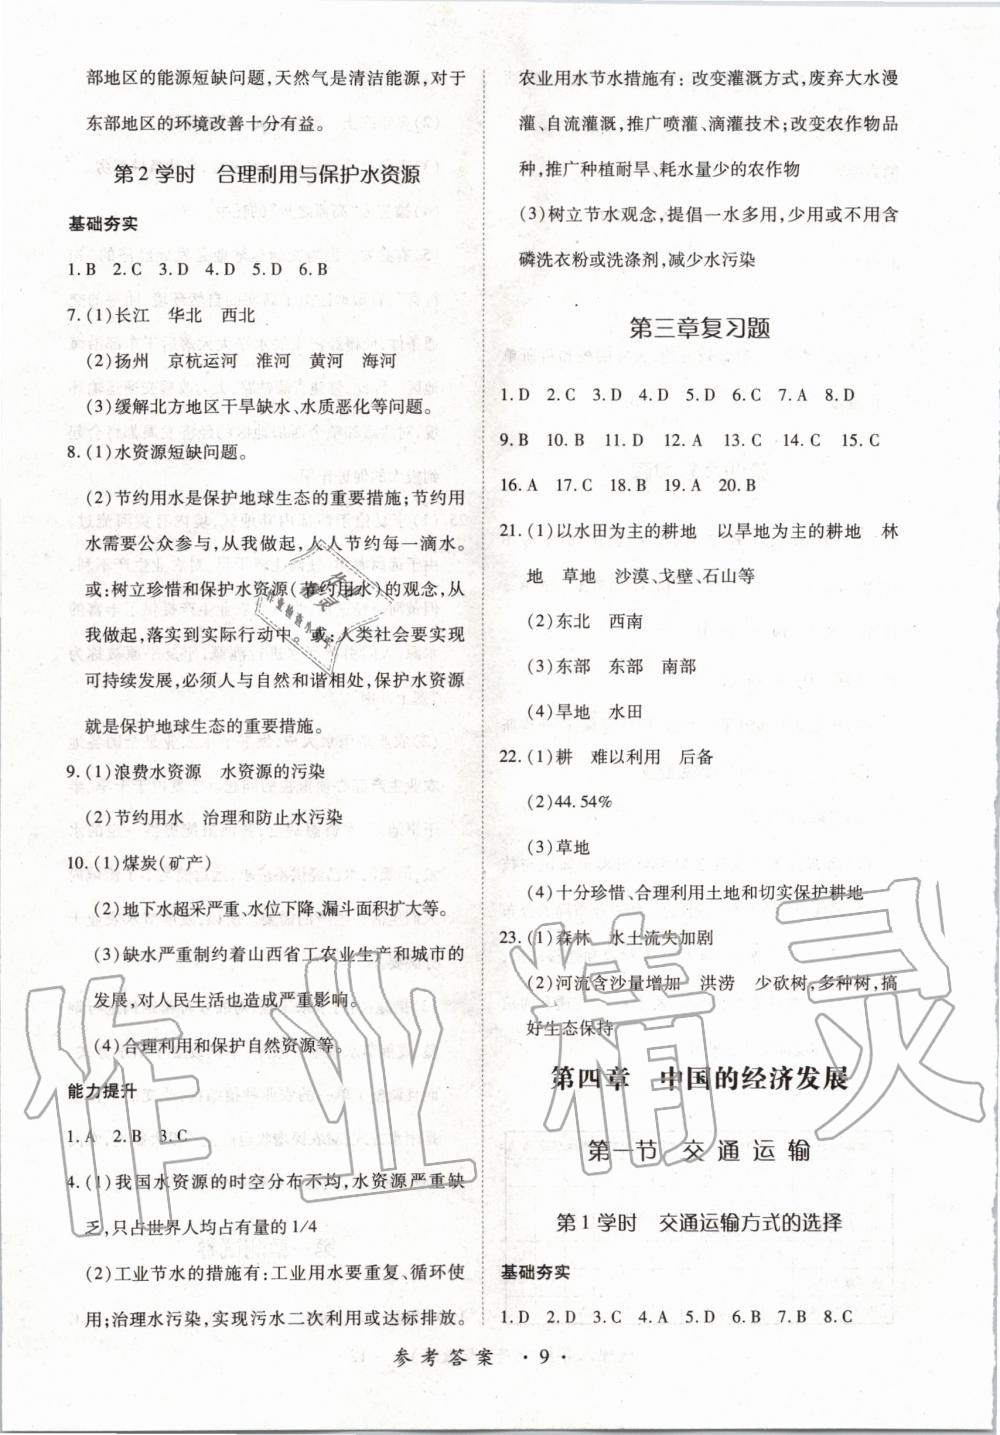 部地区的能源短缺问题,天然气是清洁能源,对于
东部地区的环境改善十分有益。
第2学时 合理利用与保护水资源
基础夯实
1.B 2.C 3.D 4.D 5.D 6.B
7.(1)长江 华北 西北
(2)扬州 京杭运河 淮河 黄河 海河
(3)缓解北方地区干旱缺水、水质恶化等问题。
8.(1)水资源短缺问题。
(2)节约用水是保护地球生态的重要措施;节约用
水需要公众参与,从我做起,人人节约每一滴水。
或:树立珍惜和保护水资源(节约用水)的观念,从
我做起,落实到实际行动中。或:人类社会要实现
可持续发展,必须人与自然和谐相处,保护水资源
就是保护地球生态的重要措施。
9.(1)浪费水资源 水资源的污染
(2)节约用水 治理和防止水污染
10.(1)煤炭(矿产)
(2)地下水超采严重、水位下降,漏斗面积扩大等。
(3)缺水严重制约着山西省工农业生产和城市的
发展,对人民生活也造成严重影响。
(4)合理利用和保护自然资源等。
能力提升
1.A 2.B 3.C
4.(1)我国水资源的时空分布不均,水资源严重缺
乏,只占世界人均占有量的1/4
(2)工业节水的措施有:工业用水要重复、循环使
用;治理水污染,实现污水二次利用或达标排放。
农业用水节水措施有:改变灌溉方式,废弃大水漫
灌、自流灌溉,推广喷灌、滴灌技术;改变农作物品
种,推广种植耐旱、耗水量少的农作物
(3)树立节水观念,提倡一水多用,少用或不用含
磷洗衣粉或洗涤剂,减少水污染
第三章复习题
1.D 2.C 3.D 4.D 5.D 6.C 7.A 8.D
9.B 10.B 11.D 12.A 13.C 14.C 15.C
16.A 17.C 18.B 19.A 20.B
21.(1)以水田为主的耕地 以旱地为主的耕地 林
地 草地 沙漠、戈壁、石山等
(2)东北 西南
(3)东部 东部 南部
(4)旱地 水田
22.(1)耕 难以利用 后备
(2)44.54%
(3)草地
(4)十分珍惜、合理利用土地和切实保护耕地
23.(1)森林 水土流失加剧
(2)河流含沙量增加 洪涝 少砍树,多种树,搞
好生态保持
第四章 中国的经济发展
第一节 交通运输
第1学时 交通运输方式的选择
基础夯实
1.D 2.D 3.C 4.A 5.D 6.B 7.B 8.C
参考答案 ·9·
作业精灵